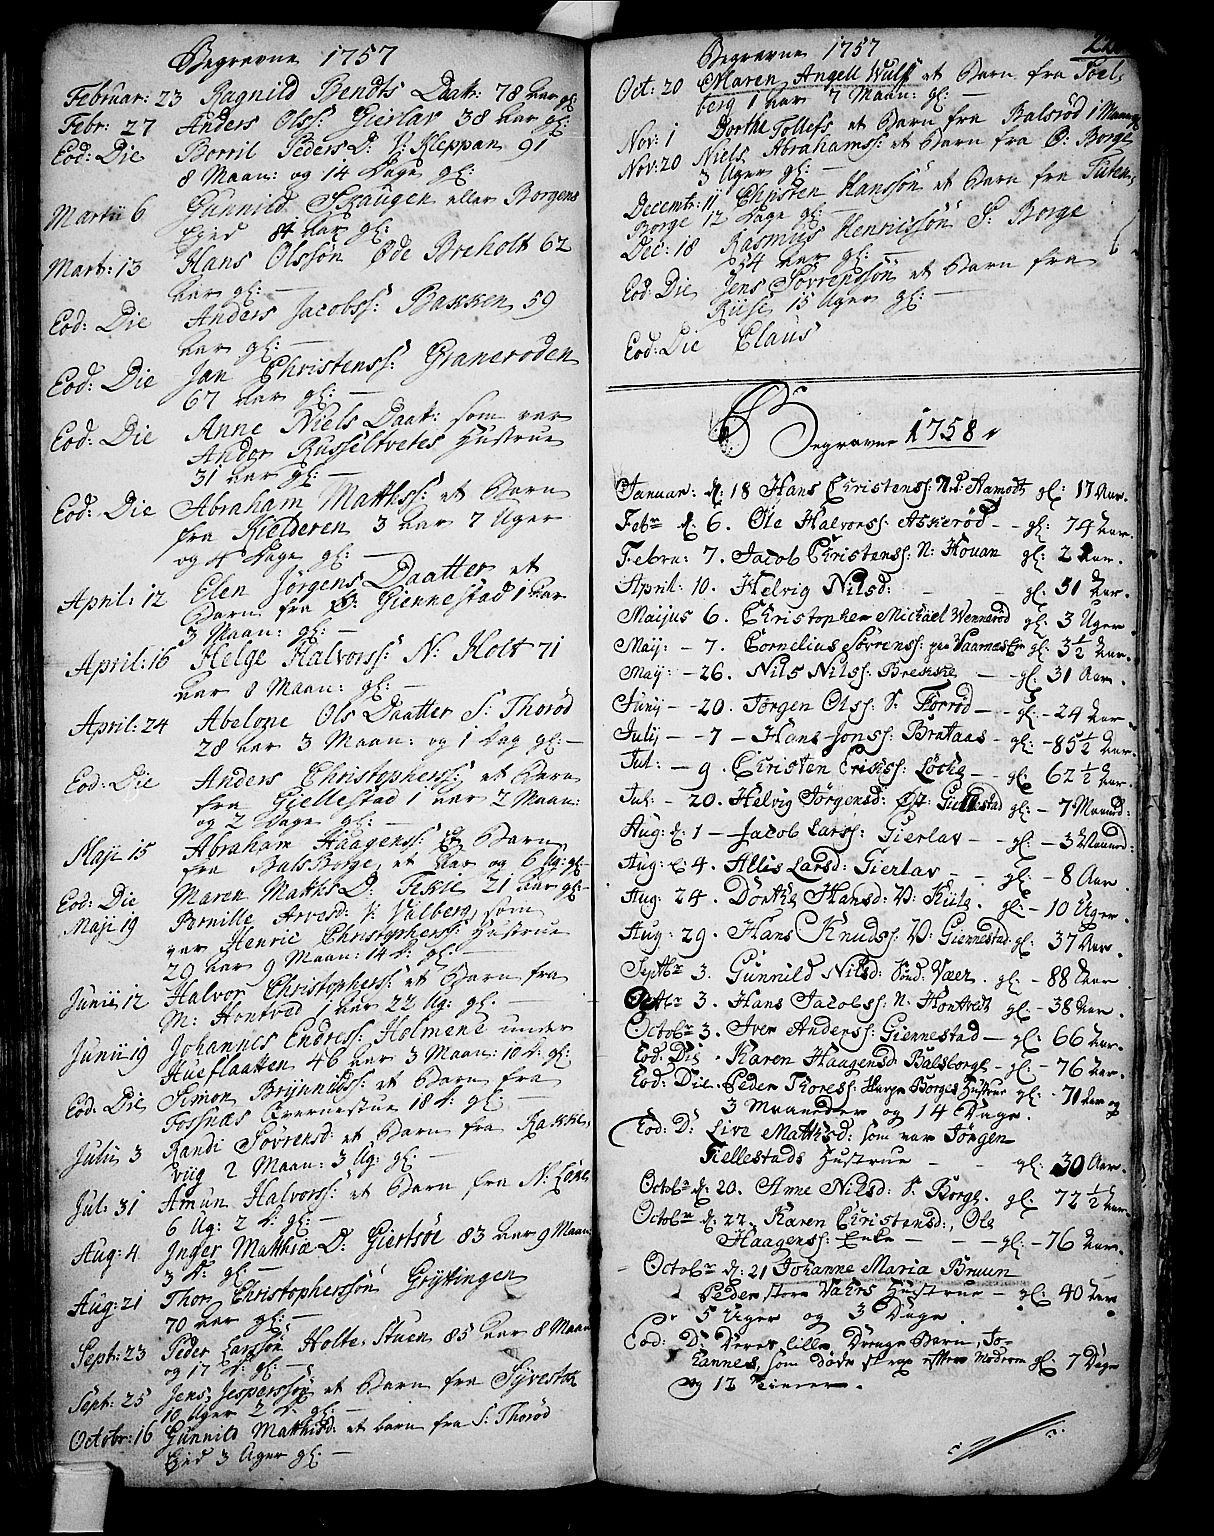 Begravne 1757
Februar: 23 Ragnild Bendts Daat: 78 aar gl:
Febr: 27 Anders Olss: Gierlav 38 aar gl:
Eod: Die Borril Peders D: V: Kleppan 91
8 Maan: og 14 Dage gl:
Martii 6 Gunnild Skaugen eller Borgens
Eied 84 aar gl:
Mart: 13 Hans Olssøn Øde Breholt 62
aar gl: —
Eod: Die Anders Jacobss: Bakken 59
aar gl: —
Eod: Die Jan Christenss: Graneroden
67 aar gl: —
Eod: Die Anne Niels Daat: som var
Ander Russeltvetes Hustrue
31 aar gl: —
Eod: Die Abraham Matthss: et Barn
fra Kielderen 3 aar 7 Uger
og 4 Dage gl: —
April: 12 Elen Jørgens Daatter et
Barn fra Ø: Giennestad 1 aar
3 Maan: gl: —
April: 16 Helge Halvorss: N: Holt 71
aar 8 Maan: gl: —
April: 24 Abelone Ols Daatter S: Thorød
28 aar 3 Maan: og 1 Dag gl: —
Eod: Die Anders Christopherss: et Barn
fra Giellestad 1 aar 2 Maan:
og 2 Dage gl: —
Maji 15 Abraham Haagenss: et Barn
fra Bals Borge, et aar og 6 Ug: gl: —
Eod: Die Maren Matths D: Fekie 21 aar gl: —
Maji 19 Pernille Arvesd: V: Valberg, som
var Henric Christopherss: Hustrue
29 aar 9 Maan: 14 d: gl: —
Junii 12 Halvor Christopherss: et Barn fra
M: Hontved 1 aar 22 Ug: gl: —
Junii 19 Johannes Endress: Holmene under
Hueflaatten 46 aar 3 Maan: 10 d: gl:
Eod: Die Simon Brynnildss: et Barn fra
Fossnæs Qvernestue 18 d: gl: —
Julii 3 Randi Søvrensd: et Barn fra Rakke,
viig 2 Maan: 3 Ug: gl: —
Jul: 31 Amun Halvorss: et Barn fra N: Løke
6 Ug: 2 d: gl: —
Aug: 4 Inger Matthiæ D: Giertsøe 83 aar 9 Maan:
3 d: gl: —
Aug: 21 Thor Christopherssøn Gryttingen
70 aar gl: —
Sept: 23 Peder Larssøn Holte, Stuen 85 aar 8 Maan
og 17 d: gl: —
Sept: 25 Jens Jesperssøn et Barn fra
10 Uger 2 d: gl: —
Octobr: 16 Gunnild Matthisd: et barn fra S: Thorød
Eied 3 Uger gl: —
Begravne 1757
Oct: 20 Maren Angell Wulf et Barn fra Foel,
berg 1 aar 7 Maan: gl: —
Nov: 1 Dorthe Tollefs et Barn fra Balsrød 1 Maan:
Nov: 20 Niels Abrahamss: et Barn fra Ø: Borge
3 Uger gl: —
Decembr: 11 Christen Hanssøn et Barn fra Tuten,
Borge 12 Dage gl: —
Dec: 18 Rasmus Henricssøn S: Borge
54 aar gl: —
Eod: Die Jens Søvrenssøn et Barn fra
Riise 15 Uger gl: —
Eod: Die Claus
Begravne 1758
Januar: d: 18 Hans Christenss: Aamodt gl: 17 Aar.
Febr d: 6. Ole Halvorss: Askerød — gl: 74 aar.
Februa: 7. Jacob Christenss: N: Houan gl: 2 aar.
April: 10. Helvig Nilsd: — gl: 51 aar.
Maijus 6. Christopher Michael Wennerød gl: 3 Uger
Maij: — 7. Cornelius Søvrenss: gl: 3½ aar.
Maij: — 26. Nils Nilss: Brekke — gl: 31 Aar.
Junij — 20. Jørgen Olss: S: Torrød — gl: — 24 aar
Julij — 7 — Hans Jonss: Brataas — gl: — 85½ aar.
Jul: — 9. Christen Erikss: Løche — gl: 62½ aar
Jul: — 20. Helvig Jørgensd: Øst: Giellestad gl: — 7 Maaned:
Aug: d: 1 — Jacob Larss: Gierlav — gl: — 3 Maaned:
Aug: d: 4. Allis Larsd: Gierlav — gl: — 8 Aar.
Aug: 24. Dorthe Hansd: V: Kiile. gl: — 10 Uger.
Aug: 29. Hans Knudss: V: Giennestad gl: 37 aar
Septbr 3. Gunnild Nilsd: Veer. gl: — 88 aar
Septbr 3. Hans Jacobss: N: Hontvedt gl: — 38 aar.
Octobr 3. Iver Anderss: Giennestad — gl: 66 aar.
Eod: Die. Karen Haagensd: Balsborge — gl: — 76 aar.
Eod: Die. Peder Thoress: Borges Hustrue gl: — 70 aar og
3 Maaneder og 14 Dage.
Eod: D: Live Matthisd: som var Jørgen
Giellestads Hustrue — gl: 30 Aar.
Octobr d: 20. Anne Nilsd: S: Borge. gl: 72½ aar.
Octobr d: 22. Karen Christensd:, Ole
Haagenss: Enke — gl: — 76 aar.
Octobr d: 21 Johanne Maria Bruun
Peder store Hustrue — gl: 40 aar
5 Uger og 3 Dage.
Eod: D: Deres lille Drenge Barn, Jo-
hannes, som døde strax efter Moderen gl: 7 Dage
og 12 Timer.